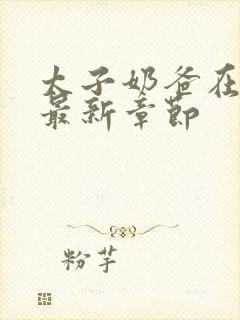 太子奶爸在
最新章节
粉芋